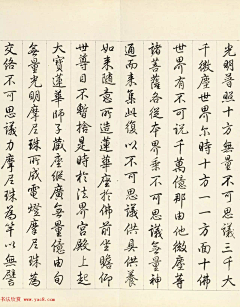 光明普照十方無量不可思議三千大
千微塵世界尔時十方一一方面十佛
世界有不可說千萬億那由他微塵等
諸菩薩各從本界乘不可思議無量神
通而来集此復以不可思議供具供養
如来隨意所造蓮華於佛前坐瞻仰
世尊目不暫捨是時於法界宮殿上起
大寶蓮華師子藏座縱廣無量億由旬
無量光明摩尼珠所成電燈摩尼珠為
交絡不可思議力摩尼珠為竿以無譬
书法欣赏